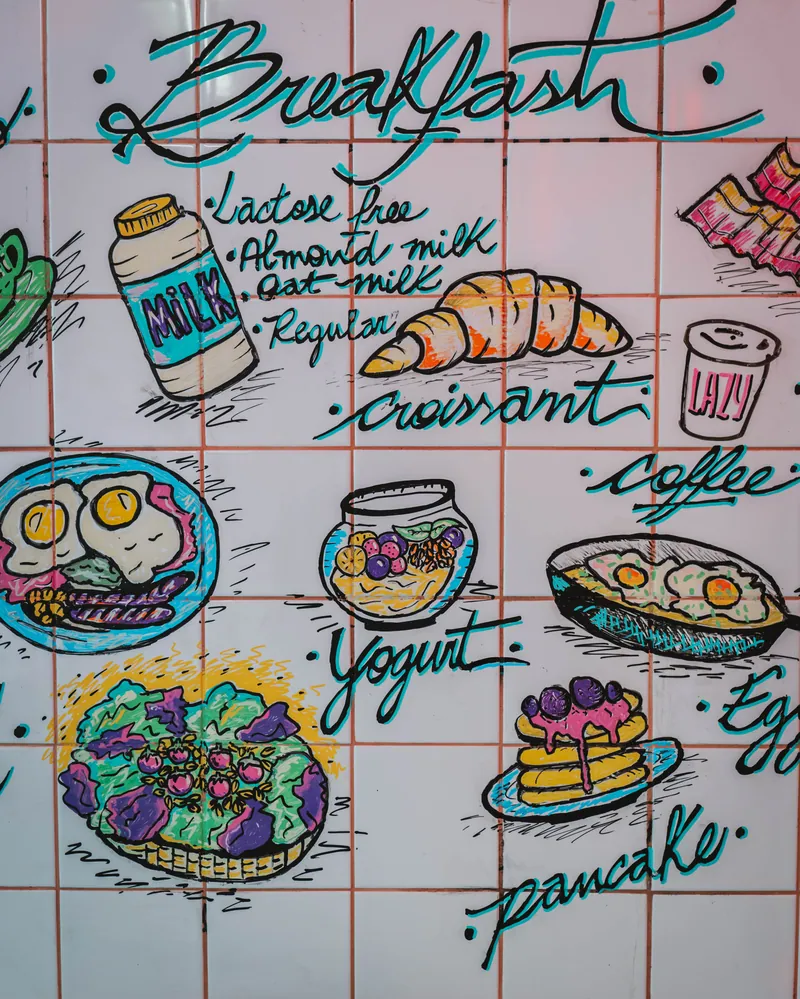 Breakfast
Lactose free
Almond milk
oat milk
Regular
MILK
croissant
LAZY
coffee
Yogurt
Egg
pancake